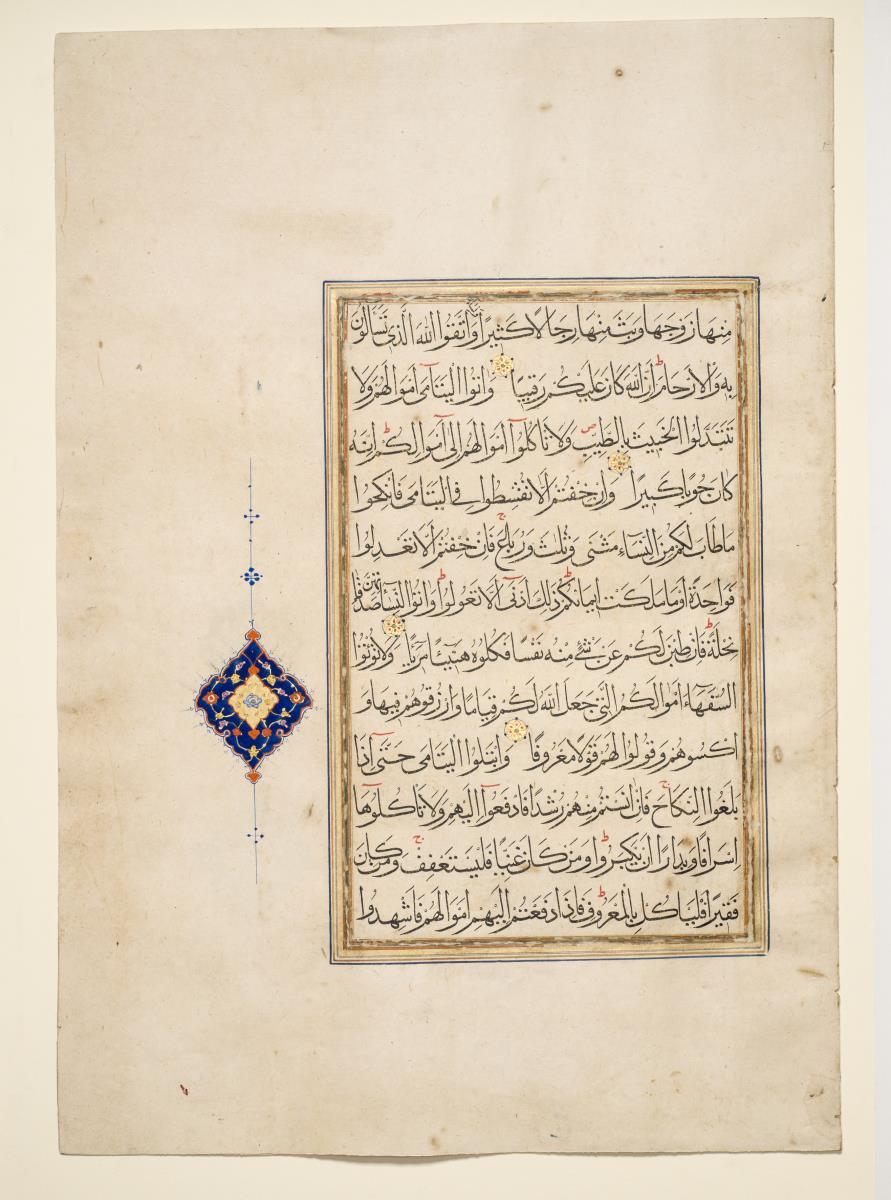 مِنْهَا زَوْجَهَا وَبَثَّ مِنْهُمَا رِجَالًا كَثِيرًا وَنِسَاءً وَاتَّقُوا اللَّهَ الَّذِي تَسَاءَلُونَ
بِهِ وَالْأَرْحَامَ إِنَّ اللَّهَ كَانَ عَلَيْكُمْ رَقِيبًا وَآتُوا الْيَتَامَى أَمْوَالَهُمْ وَلَا
تَتَبَدَّلُوا الْخَبِيثَ بِالطَّيِّبِ وَلَا تَأْكُلُوا أَمْوَالَهُمْ إِلَى أَمْوَالِكُمْ إِنَّهُ
كَانَ حُوبًا كَبِيرًا وَإِنْ خِفْتُمْ أَلَّا تُقْسِطُوا فِي الْيَتَامَى فَانْكِحُوا
مَا طَابَ لَكُمْ مِنَ النِّسَاءِ مَثْنَى وَثُلَثَ وَرُبَاعَ فَإِنْ خِفْتُمْ أَلَّا تَعْدِلُوا
فَوَاحِدَةً أَوْ مَا مَلَكَتْ أَيْمَانُكُمْ ذَلِكَ أَدْنَى أَلَّا تَعُولُوا وَآتُوا النِّسَاءَ صَدُقَاتِهِنَّ
نِحْلَةً فَإِنْ طِبْنَ لَكُمْ عَنْ شَيْءٍ مِنْهُ نَفْسًا فَكُلُوهُ هَنِيئًا مَرِيئًا وَلَا تُؤْتُوا
السُّفَهَاءَ أَمْوَالَكُمُ الَّتِي جَعَلَ اللَّهُ لَكُمْ قِيَامًا وَارْزُقُوهُمْ فِيهَا وَ
اكْسُوهُمْ وَقُولُوا لَهُمْ قَوْلًا مَعْرُوفًا وَابْتَلُوا الْيَتَامَى حَتَّى إِذَا
بَلَغُوا النِّكَاحَ فَإِنْ آنَسْتُمْ مِنْهُمْ رُشْدًا فَادْفَعُوا إِلَيْهِمْ وَلَا تَأْكُلُوهَا
إِسْرَافًا وَبِدَارًا أَنْ يَكْبَرُوا وَمَنْ كَانَ غَنِيًّا فَلْيَسْتَعْفِفْ وَمَنْ كَانَ
فَقِيرًا فَلْيَأْكُلْ بِالْمَعْرُوفِ فَإِذَا دَفَعْتُمْ إِلَيْهِمْ أَمْوَالَهُمْ فَأَشْهِدُوا